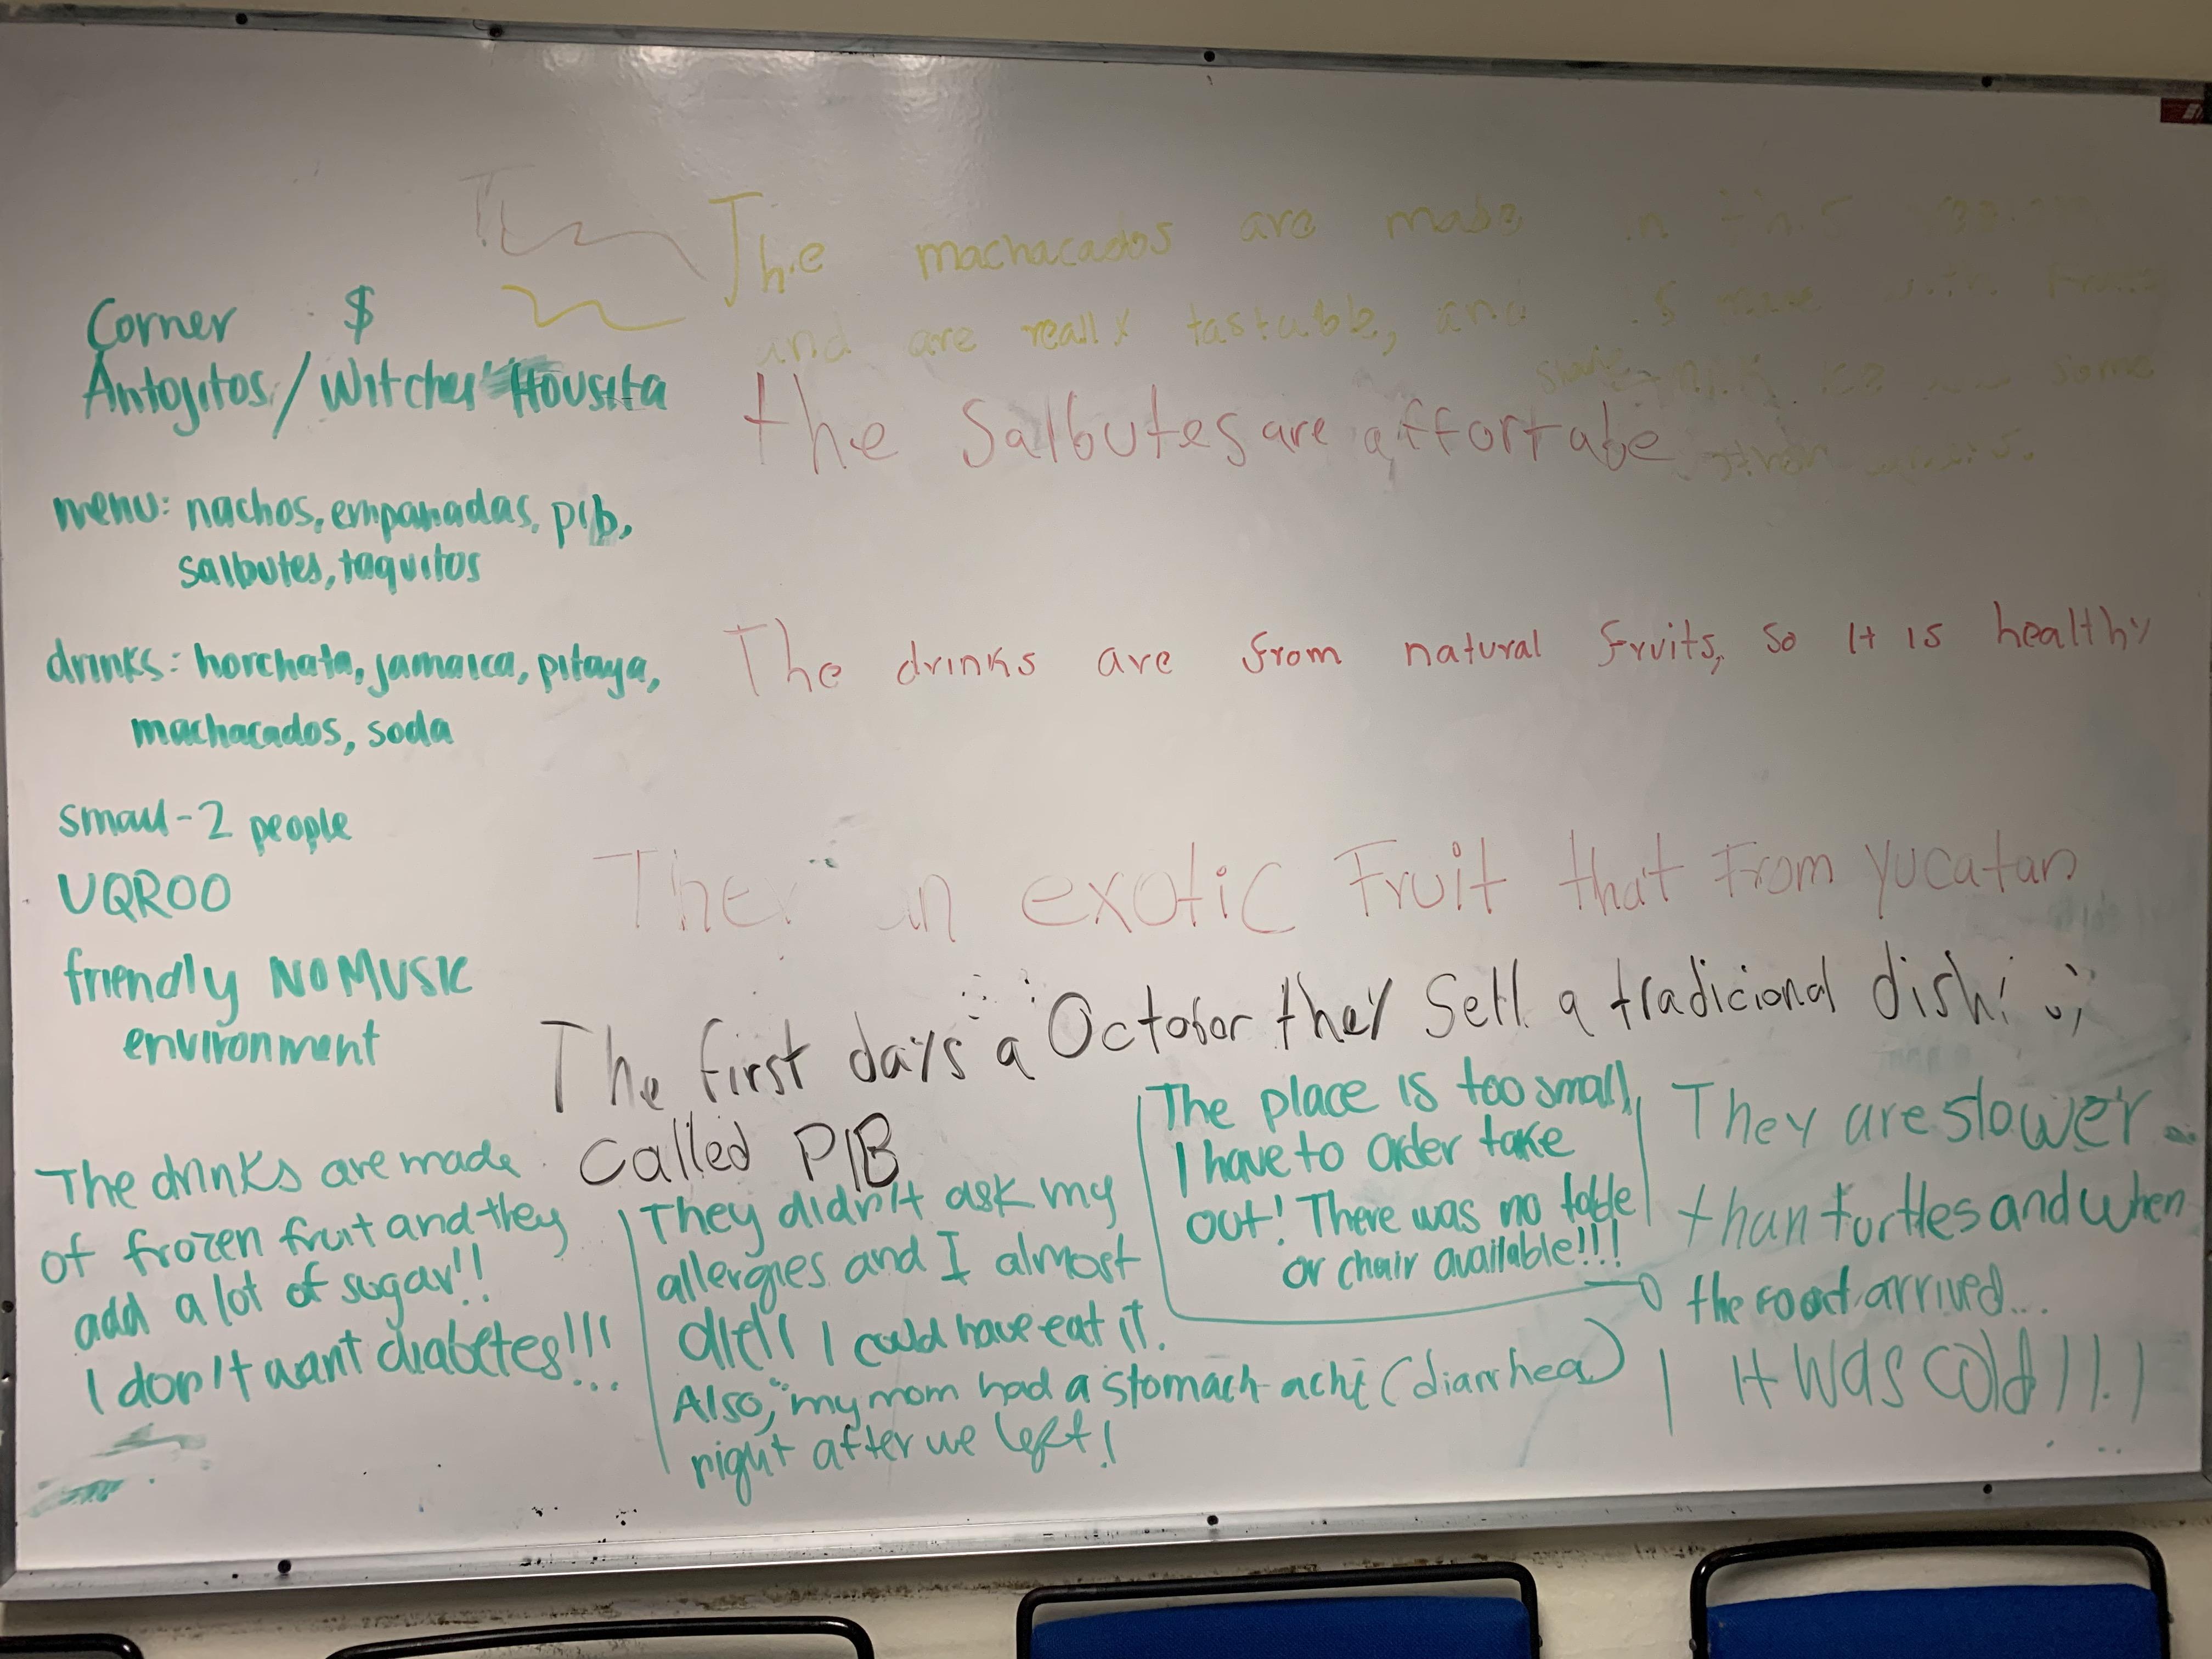 Corner $
Antojitos/Witches Housita
menu: nachos, empanadas, pib,
salbutes, taquitos
drinks: horchata, jamaica, pitaya,
machacados, soda
small-2 people
UQROO
friendly NO MUSIC
environment
The machacados are made
and are really tastable, and
some
the Salbutes are affortabe
The drinks are from natural fruits, so it is healthy
an exotic Fruit that From Yucatan
The first days a October they Sell a tradicional dish! :)
called PIB
The drinks are made
of frozen fruit and they
add a lot of sugar!!
I don't want diabetes!!!...
They didn't ask my
allergies and I almost
die!! I could have eat it.
Also, my mom had a stomach-ache (diarrhea)
right after we left!
The place is too small,
I have to order take
out! There was no table
or chair available!!!
They are slower
than turtles and when
the food arrived...
It was cold!!!